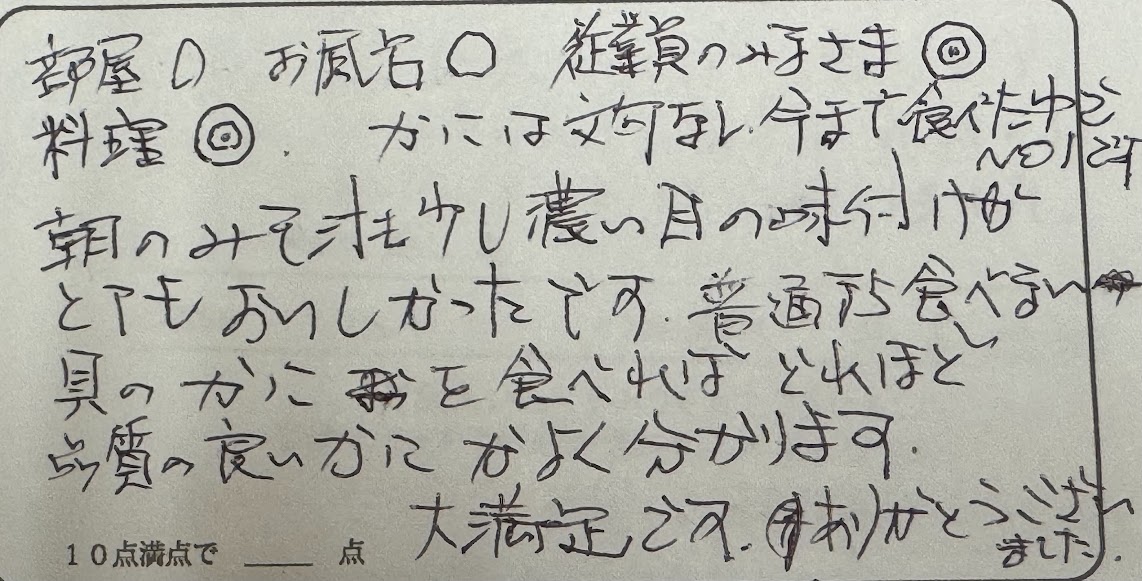 部屋 〇 お風呂 〇 従業員のみなさま ◎
料理 ◎. かには文句なし. 今まで食べた中で
NO1です
朝のみそ汁も少し濃い目の味付けが
とてもおいしかったです. 普通なら食べない
具のかにを食べればどれほど
品質の良いかにかよく分かります.
大満足です. ありがとうござい
ました.
10点満点で ____ 点